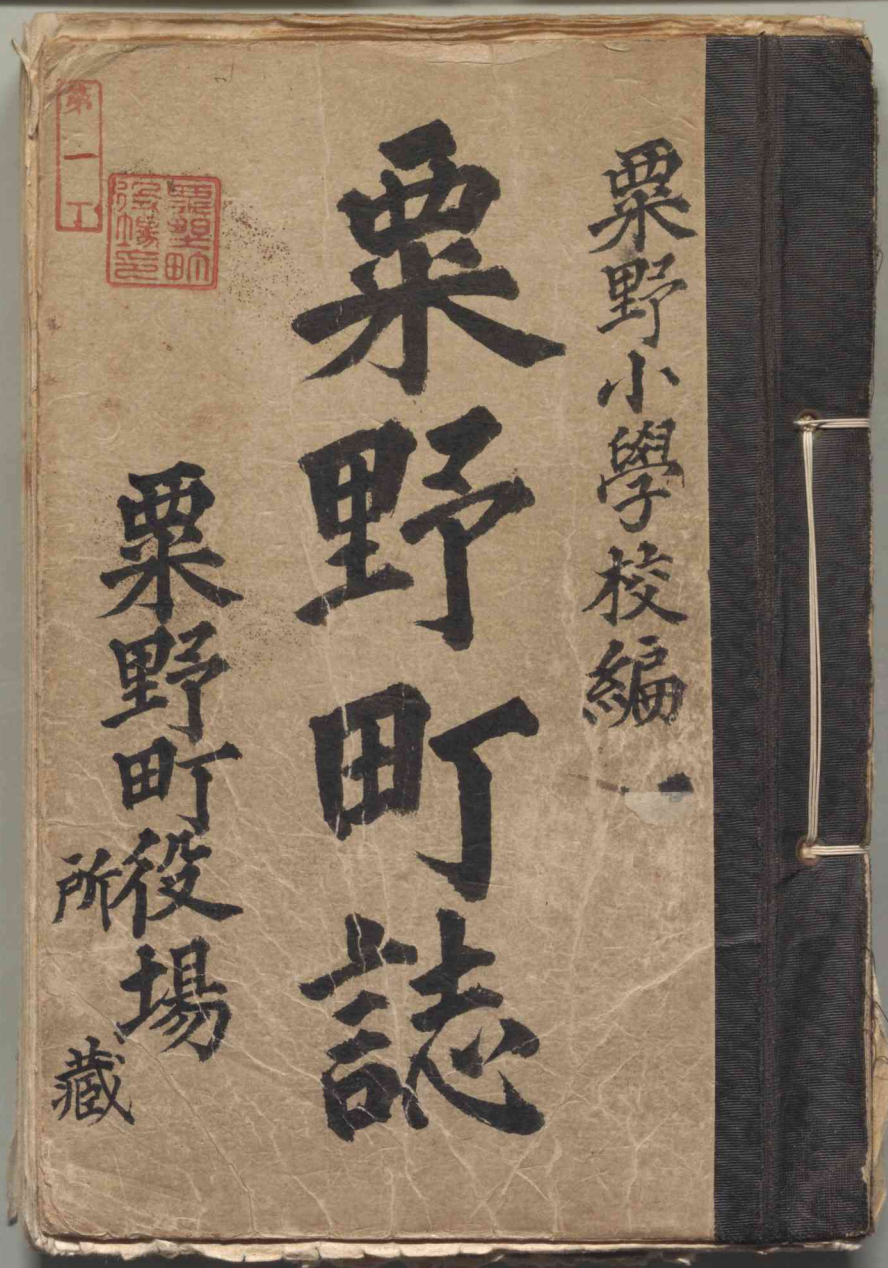 粟野小學校編 一
粟野町誌
粟野町役場
所藏
第一工
粟野町
役場印